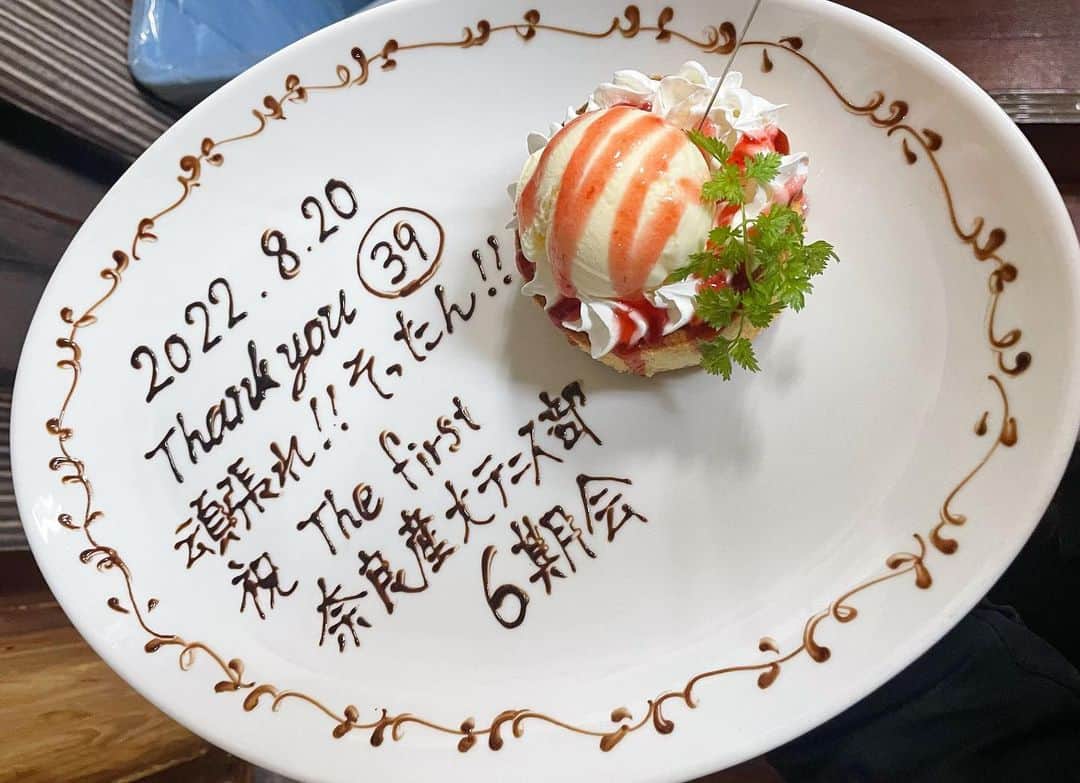 2022.8.20
Thank you 39
頑張れ!! そったん!!
祝 The first
奈良産大テニス部
6期会